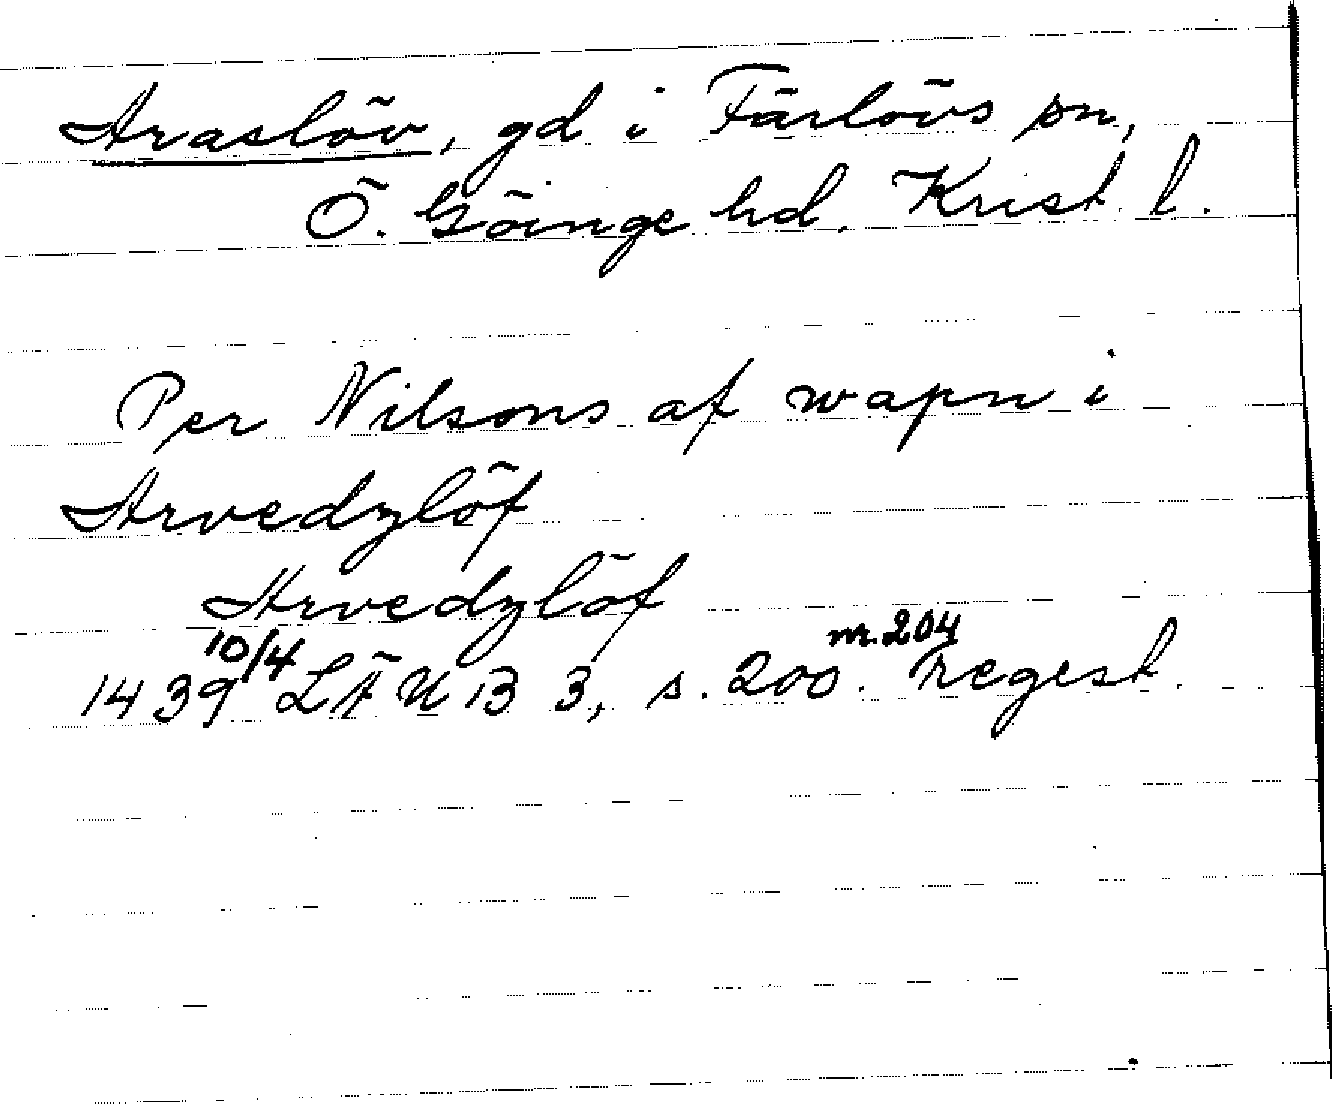 Araslöv, gd i Färlövs sn,
Ö. Göinge hd. Krist. l.
Per Nilsons af wapn i
Arvedzlöf
Arvedzlöf
1439 10/4 LÄUB 3, s. 200. nr. 204 Regest.